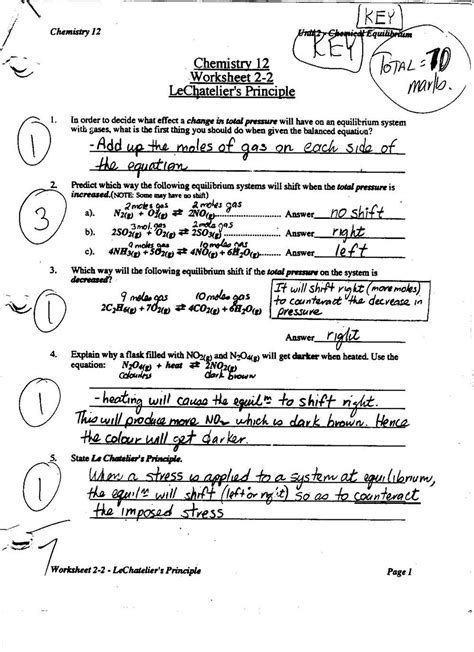 KEY
Chemistry 12
Unit 2 - Chemical Equilibrium
KEY
TOTAL = 70 marks.
Chemistry 12
Worksheet 2-2
LeChatelier's Principle
1. In order to decide what effect a change in total pressure will have on an equilibrium system
with gases, what is the first thing you should do when given the balanced equation?
1
- Add up the moles of gas on each side of
the equation
2. Predict which way the following equilibrium systems will shift when the total pressure is
increased.(NOTE: Some may have no shift)
3
2 moles gas 2 moles gas
a). N2(g) + O2(g) ⇄ 2NO(g)................ Answer no shift
3 mol. gas 2 mole gas
b). 2SO2(g) + O2(g) ⇄ 2SO3(g)............ Answer right
9 moles gas 10 moles gas
c). 4NH3(g) +5O2(g) ⇄ 4NO(g) +6H2O(g)........... Answer left
3. Which way will the following equilibrium shift if the total pressure on the system is
decreased?
1
9 moles gas 10 moles gas
2C2H6(g) +7O2(g) ⇄ 4CO2(g) +6H2O(g)
It will shift right (more moles)
to counteract the decrease in
pressure
Answer right
4. Explain why a flask filled with NO2(g) and N2O4(g) will get darker when heated. Use the
equation: N2O4(g) + heat ⇄ 2NO2(g)
Colourless dark brown
1
- heating will cause the equilm to shift right.
This will produce more NO2 which is dark brown. Hence
the colour will get darker.
5. State Le Chatelier's Principle.
1
When a stress is applied to a system at equilibrium,
the equilm will shift (left or right) so as to counteract
the imposed stress
7
Worksheet 2-2 - LeChatelier's Principle
Page 1